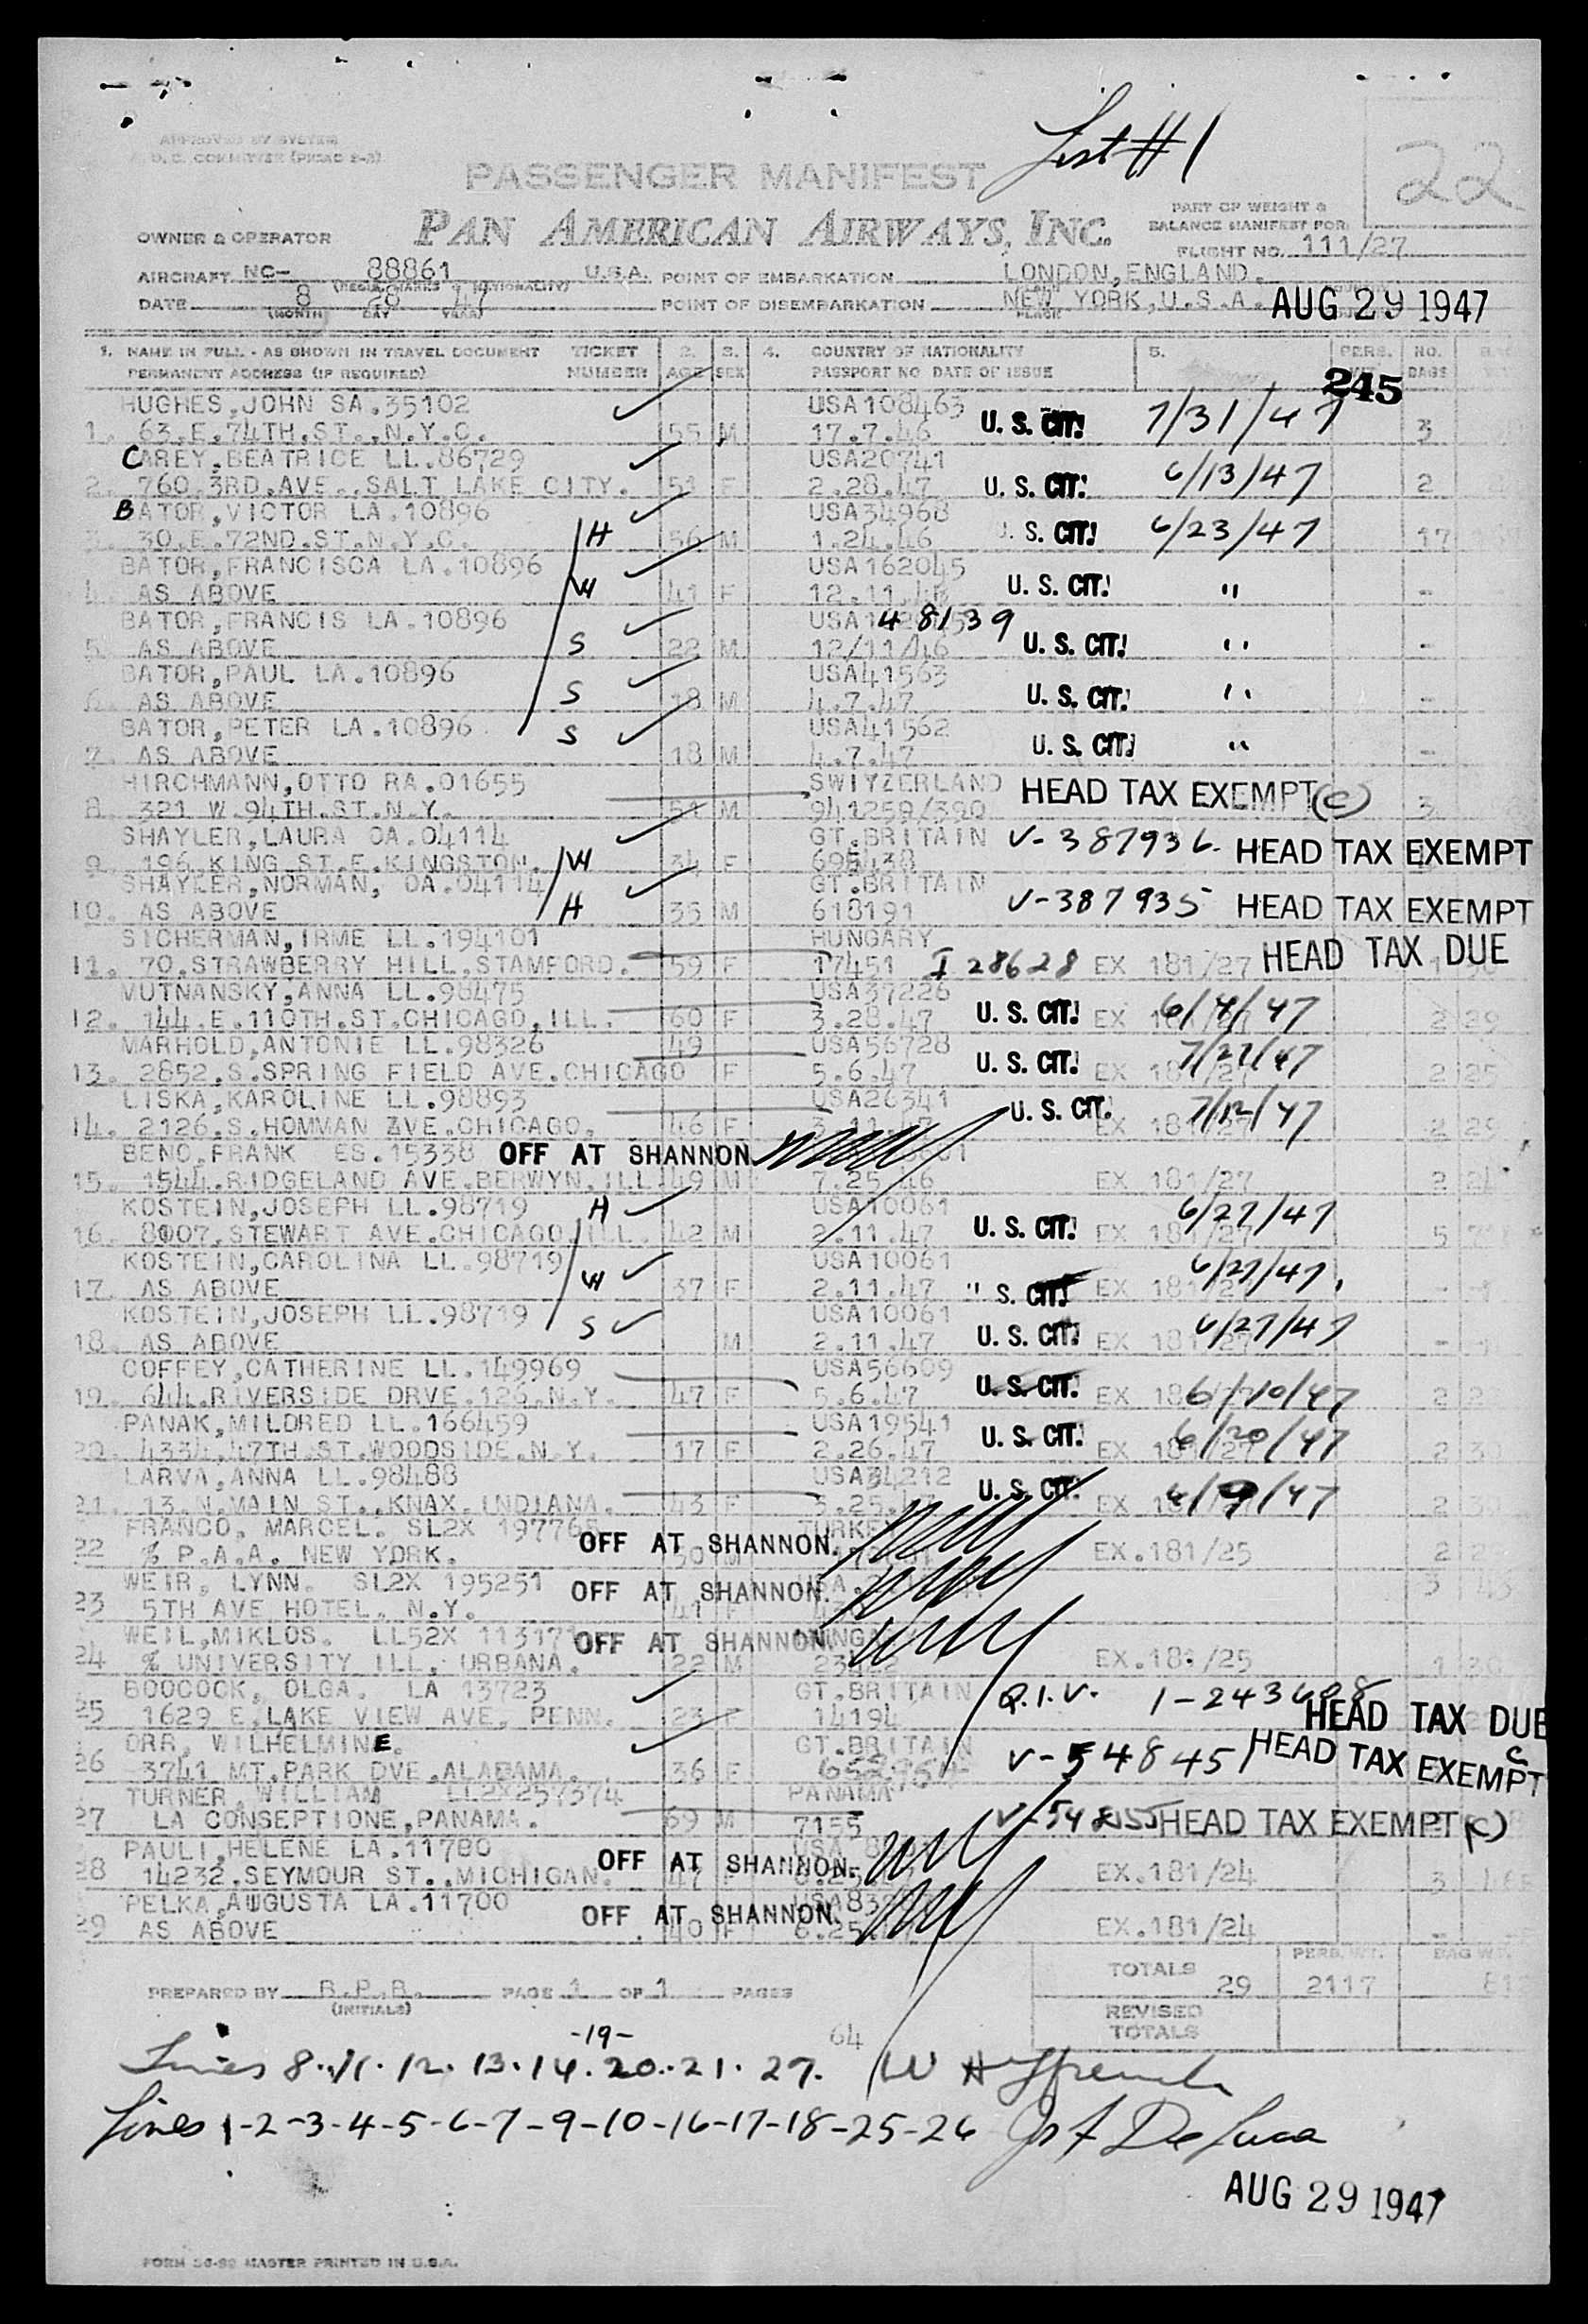 List #1
22
APPROVED BY SYSTEM
PASSENGER MANIFEST
PAN AMERICAN AIRWAYS, INC.
PART OF WEIGHT &
BALANCE MANIFEST FOR
OWNER & OPERATOR
FLIGHT NO. 111/27
AIRCRAFT NC- 88861 U.S.A. POINT OF EMBARKATION LONDON,ENGLAND.
DATE 8 28 47 POINT OF DISEMBARKATION NEW YORK,U.S.A. AUG 29 1947
(MONTH) DAY YEAR PLACE
1. NAME IN FULL - AS SHOWN IN TRAVEL DOCUMENT TICKET 2. 3. 4. COUNTRY OF NATIONALITY 5. PERS. NO.
PERMANENT ADDRESS (IF REQUIRED) NUMBER AGE SEX PASSPORT NO DATE OF ISSUE BAGS
245
HUGHES,JOHN SA.35102 USA108463
1. 63.E.74TH.ST.,N.Y.C. 55 M 17.7.46 U. S. CIT! 7/31/47 3
CAREY,BEATRICE LL.86729 USA20741
2. 760.3RD.AVE.,SALT LAKE CITY. 51 F 2.28.47 U. S. CIT! 6/13/47 2
BATOR,VICTOR LA.10896 USA34968
3. 30.E.72ND.ST.N.Y.C. H 56 M 1.24.46 U. S. CIT! 6/23/47 17
BATOR,FRANCISCA LA.10896 USA162045
4. AS ABOVE W 41 F 12.11.46 U. S. CIT! " -
BATOR,FRANCIS LA.10896 48139
5. AS ABOVE S 22 M 12/11/46 U. S. CIT! " -
BATOR,PAUL LA.10896 USA41563
6. AS ABOVE S 18 M 4.7.47 U. S. CIT! " -
BATOR,PETER LA.10896 USA41562
7. AS ABOVE S 18 M 4.7.47 U. S. CIT! " -
HIRCHMANN,OTTO RA.01655 SWITZERLAND HEAD TAX EXEMPT(C)
8. 321 W.94TH.ST.N.Y. 51 M 941259/390 3
SHAYLER,LAURA OA.04114 GT.BRITAIN V-387936 HEAD TAX EXEMPT
9. 196.KING ST.E.KINGSTON. W 34 F 695438
SHAYLER,NORMAN, OA.04114 GT.BRITAIN
10. AS ABOVE H 35 M 618191 V-387935 HEAD TAX EXEMPT
SICHERMAN,IRME LL.194101 HUNGARY
11. 70.STRAWBERRY HILL.STAMFORD. 59 F 17451 I 28628 EX 181/27 HEAD TAX DUE
VUTNANSKY,ANNA LL.98475 USA37226
12. 144.E.110TH.ST.CHICAGO,ILL. 60 F 3.28.47 U. S. CIT! EX 6/4/47 2 29
MARHOLD,ANTONIE LL.98326 49 USA56728
13. 2852.S.SPRING FIELD AVE.CHICAGO F 5.6.47 U. S. CIT! EX 7/21/47 2 25
LISKA,KAROLINE LL.98893 USA26341
14. 2126.S.HOMMAN AVE.CHICAGO. 46 F U. S. CIT. EX 181/27 7/12/47 2 29
BENO,FRANK ES.15338 OFF AT SHANNON
15. 1544.RIDGELAND AVE.BERWYN.ILL 49 M 7.25.46 EX 181/27 2 24
KOSTEIN,JOSEPH LL.98719 H USA10061 6/27/47
16. 8007.STEWART AVE.CHICAGO.ILL. 42 M 2.11.47 U. S. CIT! EX 181/27 5
KOSTEIN,CAROLINA LL.98719 USA10061 6/27/47
17. AS ABOVE W 37 F 2.11.47 " S. CIT! EX - -
KOSTEIN,JOSEPH LL.98719 S USA10061 6/27/47
18. AS ABOVE M 2.11.47 U. S. CIT! EX - -
COFFEY,CATHERINE LL.149969 USA56609
19. 644.RIVERSIDE DRVE.126.N.Y. 47 F 5.6.47 U. S. CIT! EX 6/10/47 2
PANAK,MILDRED LL.166459 USA19541
20. 4334.47TH.ST.WOODSIDE.N.Y. 17 F 2.26.47 U. S. CIT! EX 6/20/47 2 30
LARVA,ANNA LL.98488 USA34212
21. 13.N.MAIN ST.,KNAX.INDIANA. 43 F 3.25.47 U. S. CIT. EX 6/9/47 2 30
FRANCO, MARCEL. SL2X OFF AT SHANNON.
22 % P.A.A. NEW YORK. EX.181/25 2
WEIR, LYNN. SL2X 195251 OFF AT SHANNON.
23 5TH AVE HOTEL. N.Y. 41
WEIL,MIKLOS. LL52X OFF AT SHANNON.
24 % UNIVERSITY ILL. URBANA. 22 M EX.181/25 1 30
BOOCOCK, OLGA. LA 13723 GT.BRITAIN Q.I.V. 1-243608
25 1629 E.LAKE VIEW AVE, PENN. 23 F 14194 HEAD TAX DUE
ORR, WILHELMINE. GT.BRITAIN
26 3741 MT.PARK DVE.ALABAMA. 36 F V-548451 HEAD TAX EXEMPT C
TURNER, WILLIAM LL2X257374 PANAMA
27 LA CONSEPTIONE,PANAMA. 69 M 7155 HEAD TAX EXEMPT(C)
PAULI,HELENE LA.11780 OFF AT SHANNON.
28 14232.SEYMOUR ST.,MICHIGAN. 47 F EX.181/24 3
PELKA,AUGUSTA LA.11700 OFF AT SHANNON.
29 AS ABOVE 40 F 6.25. EX.181/24 -
TOTALS 29 PERS. WT. 2117 BAG WT.
PREPARED BY R.P.R. PAGE 1 OF 1 PAGES
(INITIALS)
REVISED
TOTALS
-19- 64
Lines 8.11.12.13.14.20.21.27. W H Ffrench
Lines 1-2-3-4-5-6-7-9-10-16-17-18-25-26 Jos A De Luca
AUG 29 1947
FORM 36-92 MASTER PRINTED IN U.S.A.